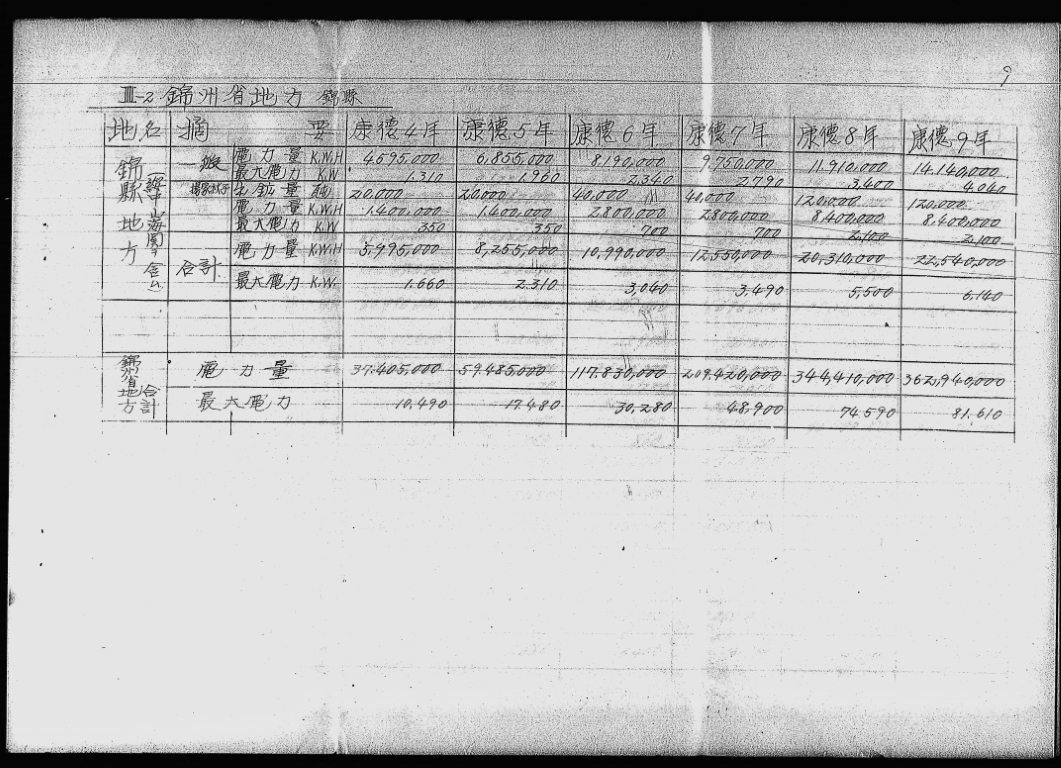 9
Ⅲ-2 錦州省地方 錦縣
地名 摘 要 康德4年 康德5年 康德6年 康德7年 康德8年 康德9年
錦縣地方
一般 電力量 K.W.H 4,595,000 6,855,000 8,190,000 9,750,000 11,910,000 14,140,000
最大電力 K.W 1,310 1,960 2,340 2,790 3,400 4,040
鑛量 20,000 20,000 40,000 40,000 120,000 120,000
電力量 K.W.H 1,400,000 1,400,000 2,800,000 2,800,000 8,400,000 8,400,000
最大電力 K.W 350 350 700 700 2,100 2,100
合計 電力量 K.W.H 5,995,000 8,255,000 10,990,000 12,550,000 20,310,000 22,540,000
最大電力 K.W. 1,660 2,310 3,040 3,490 5,500 6,140
錦州省地方合計
電力量 37,405,000 59,485,000 117,830,000 209,420,000 344,410,000 362,940,000
最大電力 10,490 17,480 30,280 48,900 74,590 81,610